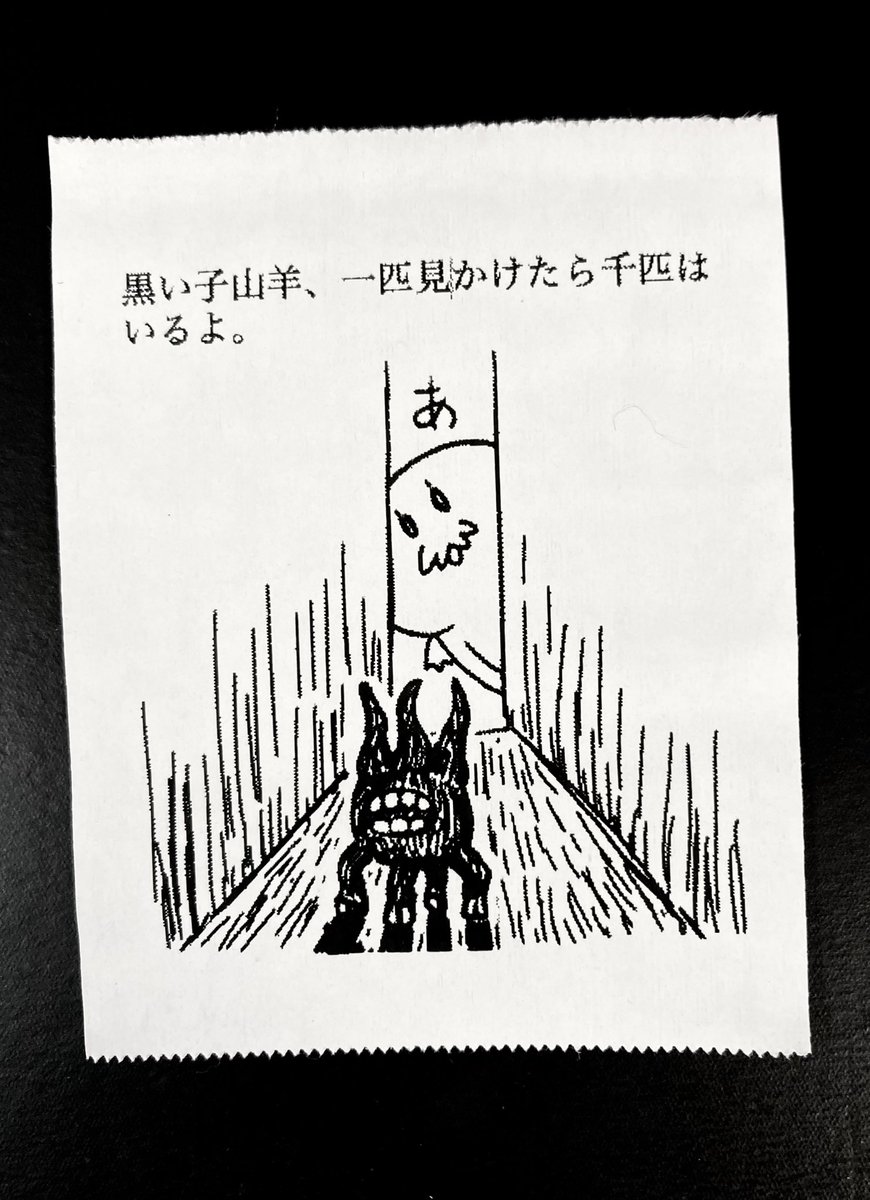 黒い子山羊、一匹見かけたら千匹は
いるよ。
あ